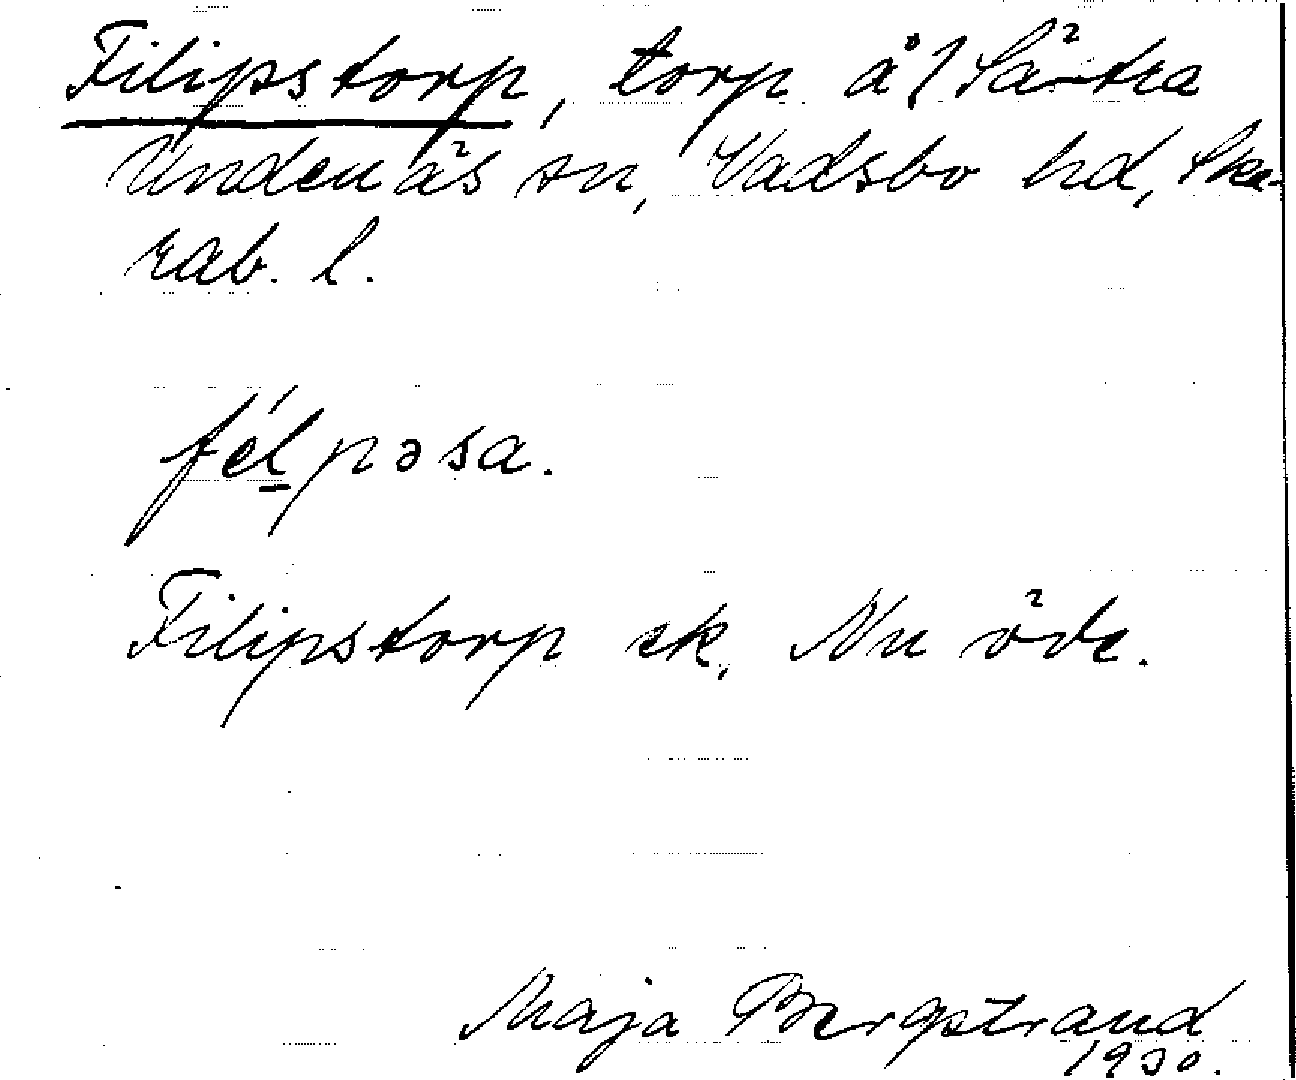 Filipstorp, torp å/ Sätra
Undenäs sn, Vadsbo hd, Ska-
rab. l.
félpəsa.
Filipstorp ek. Nu öde.
Maja Bergstrand
1930.